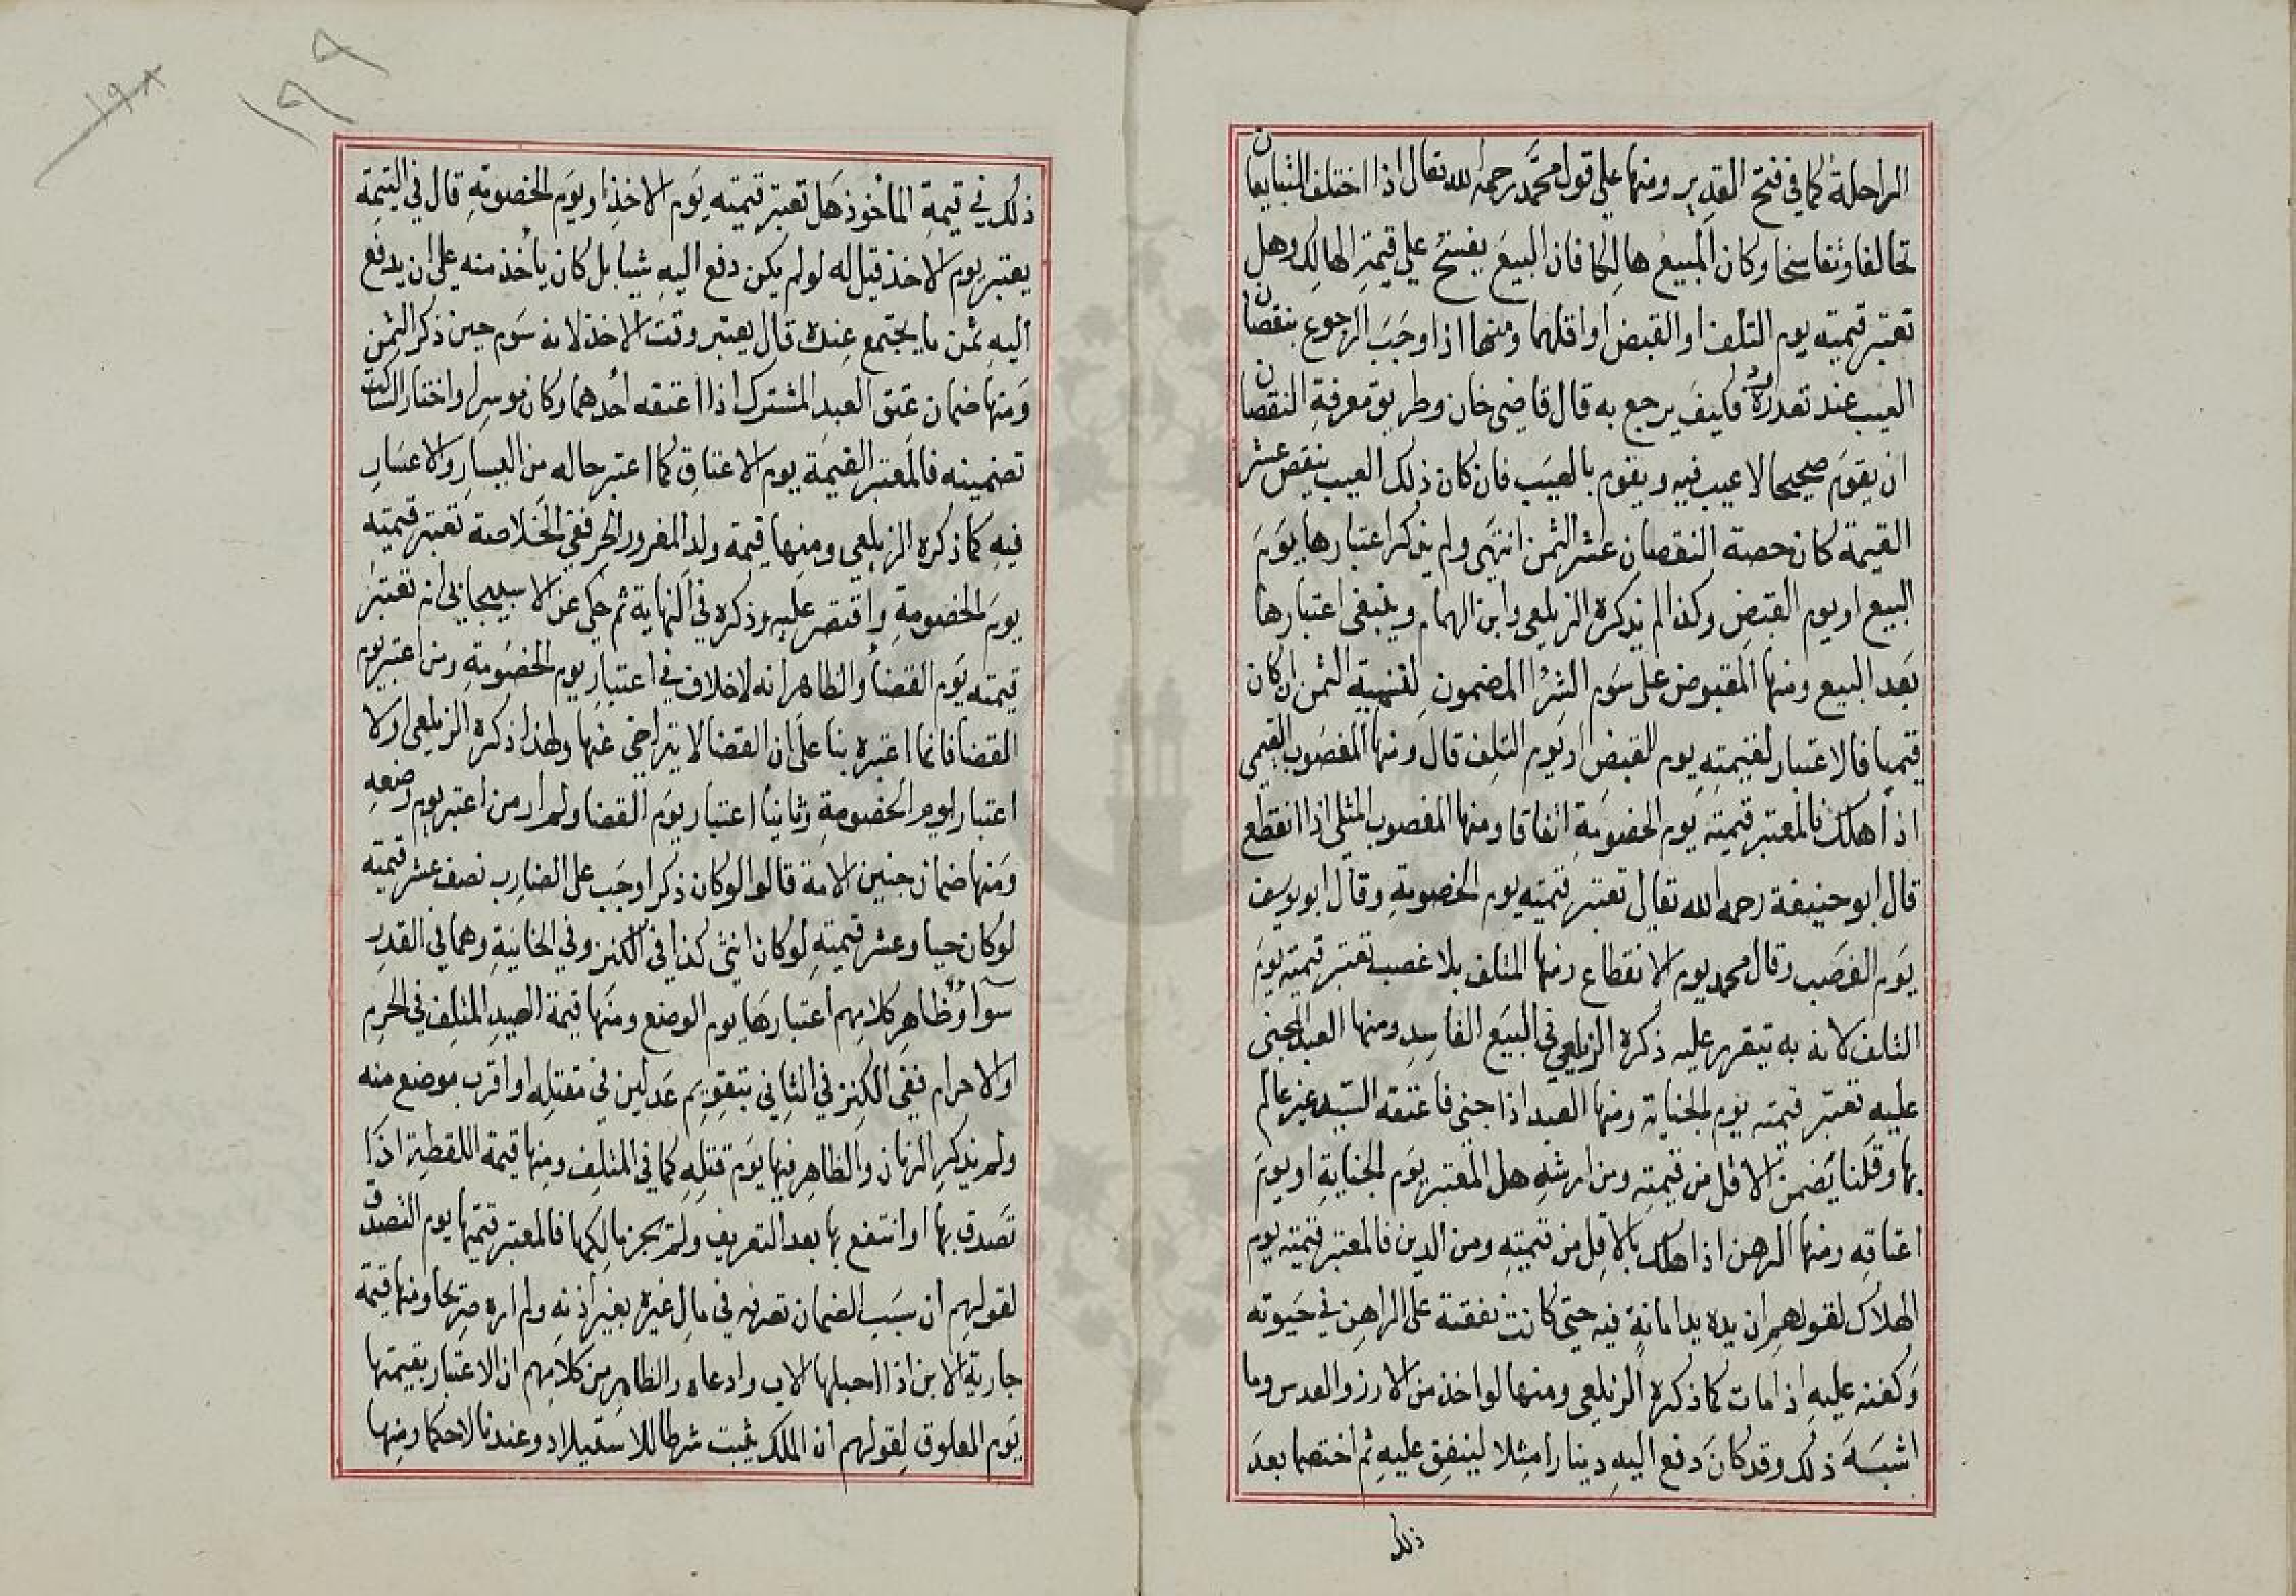 الراحلة كما في فتح القدير ومنها علي قول محمد رحمه الله تعالى اذا اختلف المتبايعان
تحالفا وتفاسخا وكان المبيع هالكا فان البيع يفسخ علي قيمة الهالك وهل
تعتبر قيمته يوم التلف او القبض او اقلهما ومنها اذا وجب الرجوع بنقصان
العيب عند تعذر رده فكيف يرجع به قال قاضي خان وطريق معرفة النقصان
ان يقوم صحيحا لا عيب فيه ويقوم بالعيب فان كان ذلك العيب ينقص عشر
القيمة كان حصة النقصان عشر الثمن انتهى ولم يذكر اعتبارها يوم
البيع او يوم القبض وكذا لم يذكره الزيلعي وابن الهمام وينبغى اعتبارها
بعد البيع ومنها المقبوض على سوم الشرا المضمون لتسمية الثمن ان كان
قيميا فالاعتبار لقيمته يوم القبض او يوم التلف قال ومنها المغصوب القيمي
اذا هلك فالمعتبر قيمته يوم الخصومة اتفاقا ومنها المغصوب المثلي اذا انقطع
قال ابو حنيفة رحمه الله تعالى تعتبر قيمته يوم الخصومة وقال ابو يوسف
يوم الغصب وقال محمد يوم الانقطاع ومنها المتلف بلا غصب تعتبر قيمته يوم
التلف لانه به تيقرر عليه ذكره الزيلعي في البيع الفاسد ومنها العبد المجنى
عليه تعتبر قيمته يوم الجناية ومنها العبد اذا جنى فاعتقه السيد غير عالم
بها وقلنا يضمن الاقل من قيمته ومن ارشه هل المعتبر يوم الجناية او يوم
اعتاقه ومنها الرهن اذا هلك بالاقل من قيمته ومن الدين فالمعتبر قيمته يوم
الهلاك لقولهم ان يده يد امانة فيه حتى كانت نفقته على الراهن في حيوته
وكفنه عليه اذ امات كما ذكره الزيلعى ومنها لو اخذ من الارز والعدس وما
اشبه ذلك وقد كان دفع اليه دينارا مثلا لينفق عليه ثم اختصما بعد
ذلك
١٩٨
١٩٩
ذلك في قيمة المأخوذ هل تعتبر قيمته يوم الاخذ او يوم الخصومة قال في اليتيمة
يعتبر يوم الاخذ قيل له لو لم يكن دفع اليه شيا بل كان يأخذ منه على ان يدفع
اليه ثمن ما يجتمع عنده قال يعتبر وقت الاخذ لانه سوم حين ذكر الثمن
ومنها ضمان عتق العبد المشترك اذا اعتقه احدهما وكان موسرا واختار الساكت
تضمينه فالمعتبر القيمة يوم الاعتاق كما اعتبر حاله من اليسار والاعسار
فيه كما ذكره الزيلعي ومنها قيمة ولد المغرور الحر ففي الخلاصة تعتبر قيمته
يوم الخصومة واقتصر عليه وذكره في النهاية ثم حكى عن الاسبيجابي انه تعتبر
قيمته يوم القضأ والظاهر انه لاخلاف في اعتبار يوم الخصومة ومن اعتبر يوم
القضا فانما اعتبره بنا على ان القضا لا يتراخى عنها ولهذا ذكره الزيلعى اولا
اعتبار يوم الخصومة وثانيا اعتبار يوم القضا ولم ار من اعتبر يوم وضعه
ومنها ضمان جنين الامة قالوا لو كان ذكرا وجب على الضارب نصف عشر قيمته
لو كان حيا وعشر قيمته لو كان انثى كذا في الكنز وفي الخانية وهما في القدر
سوآ وظاهر كلامهم اعتبارها يوم الوضع ومنها قيمة الصيد المتلف في الحرم
او الاحرام ففي الكنز في الثاني بتقويم عدلين في مقتله او اقرب موضع منه
ولم يذكر الزمان والظاهر فيها يوم قتله كما في المتلف ومنها قيمة اللقطة اذا
تصدق بها او انتفع بها بعد التعريف ولم يجز مالكها فالمعتبر قيمتها يوم التصدق
لقولهم ان سبب الضمان تصرفه في مال غيره بغير اذنه ولم اره صريحا ومنها قيمة
جارية الابن اذا احبلها الاب وادعاه والظاهر من كلامهم ان الاعتبار بقيمتها
يوم العلوق لقولهم ان الملك يثبت شرطا للاستيلاد وعندنا لا حكما ومنها